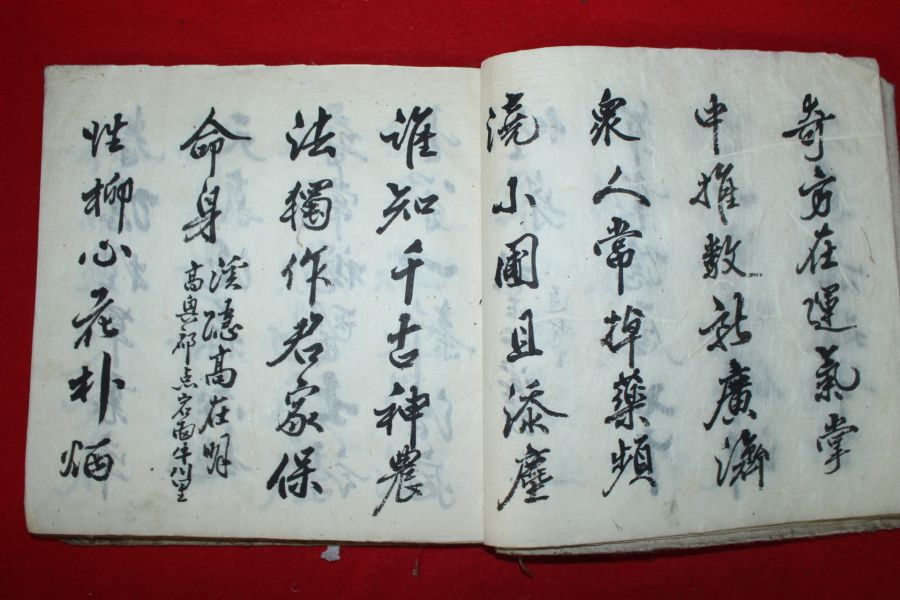 奇方在運氣掌
中推数廣濟
衆人常掉藥頻
澆小圃且添塵
誰知千古神農
法獨作君家保
命身
溪隱高在明
高興郡点岩面牛川里
性柳心花朴